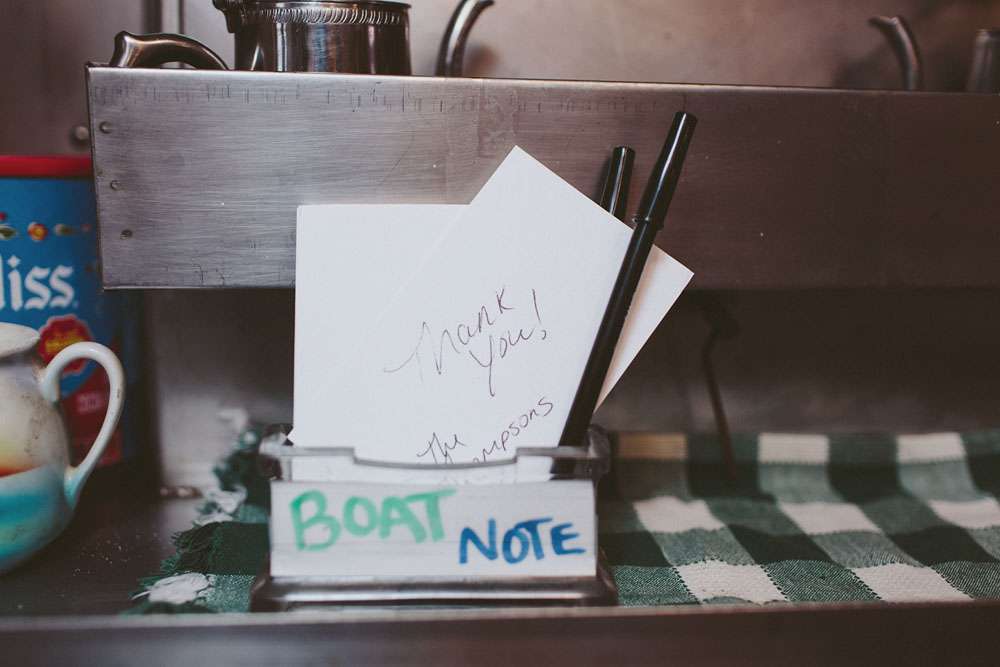 liss
Thank
You!
The
mpsons
BOAT NOTE